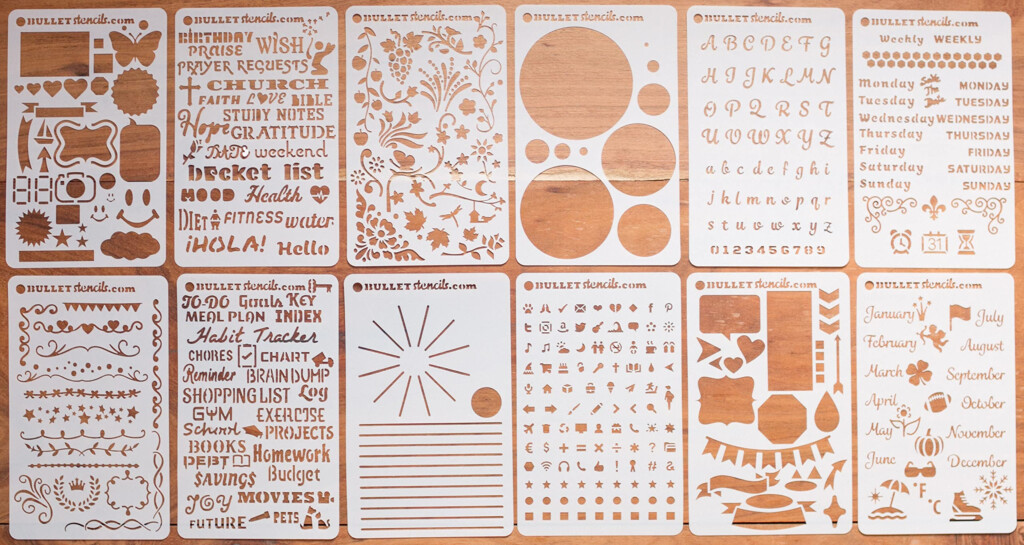 BULLETstencils.com
BULLETstencils.com
BIRTHDAY
PRAISE WISH
PRAYER REQUESTS
CHURCH
FAITH LOVE BIBLE
STUDY NOTES
Hope GRATITUDE
DATE weekend
bucket list
MOOD Health
DIET FITNESS water
¡HOLA! Hello
BULLETstencils.com
BULLETstencils.com
BULLETstencils.com
A B C D E F G
H I J K L M N
O P Q R S T
U V W X Y Z
a b c d e f g h i
j k l m n o p q r
s t u v w x y z
0123456789
BULLETstencils.com
Weekly WEEKLY
Monday Save The Date MONDAY
Tuesday TUESDAY
Wednesday WEDNESDAY
Thursday THURSDAY
Friday FRIDAY
Saturday SATURDAY
Sunday SUNDAY
31
BULLETstencils.com
BULLETstencils.com
TO-DO Goals KEY
MEAL PLAN INDEX
Habit Tracker
CHORES CHART
Reminder BRAIN DUMP
SHOPPING LIST Log
GYM EXERCISE
School PROJECTS
BOOKS Homework
DEBT
$AVINGS Budget
JOY MOVIES
FUTURE PETS
BULLETstencils.com
BULLETstencils.com
BULLETstencils.com
BULLETstencils.com
January July
February August
March September
April October
May November
June December
°F °C